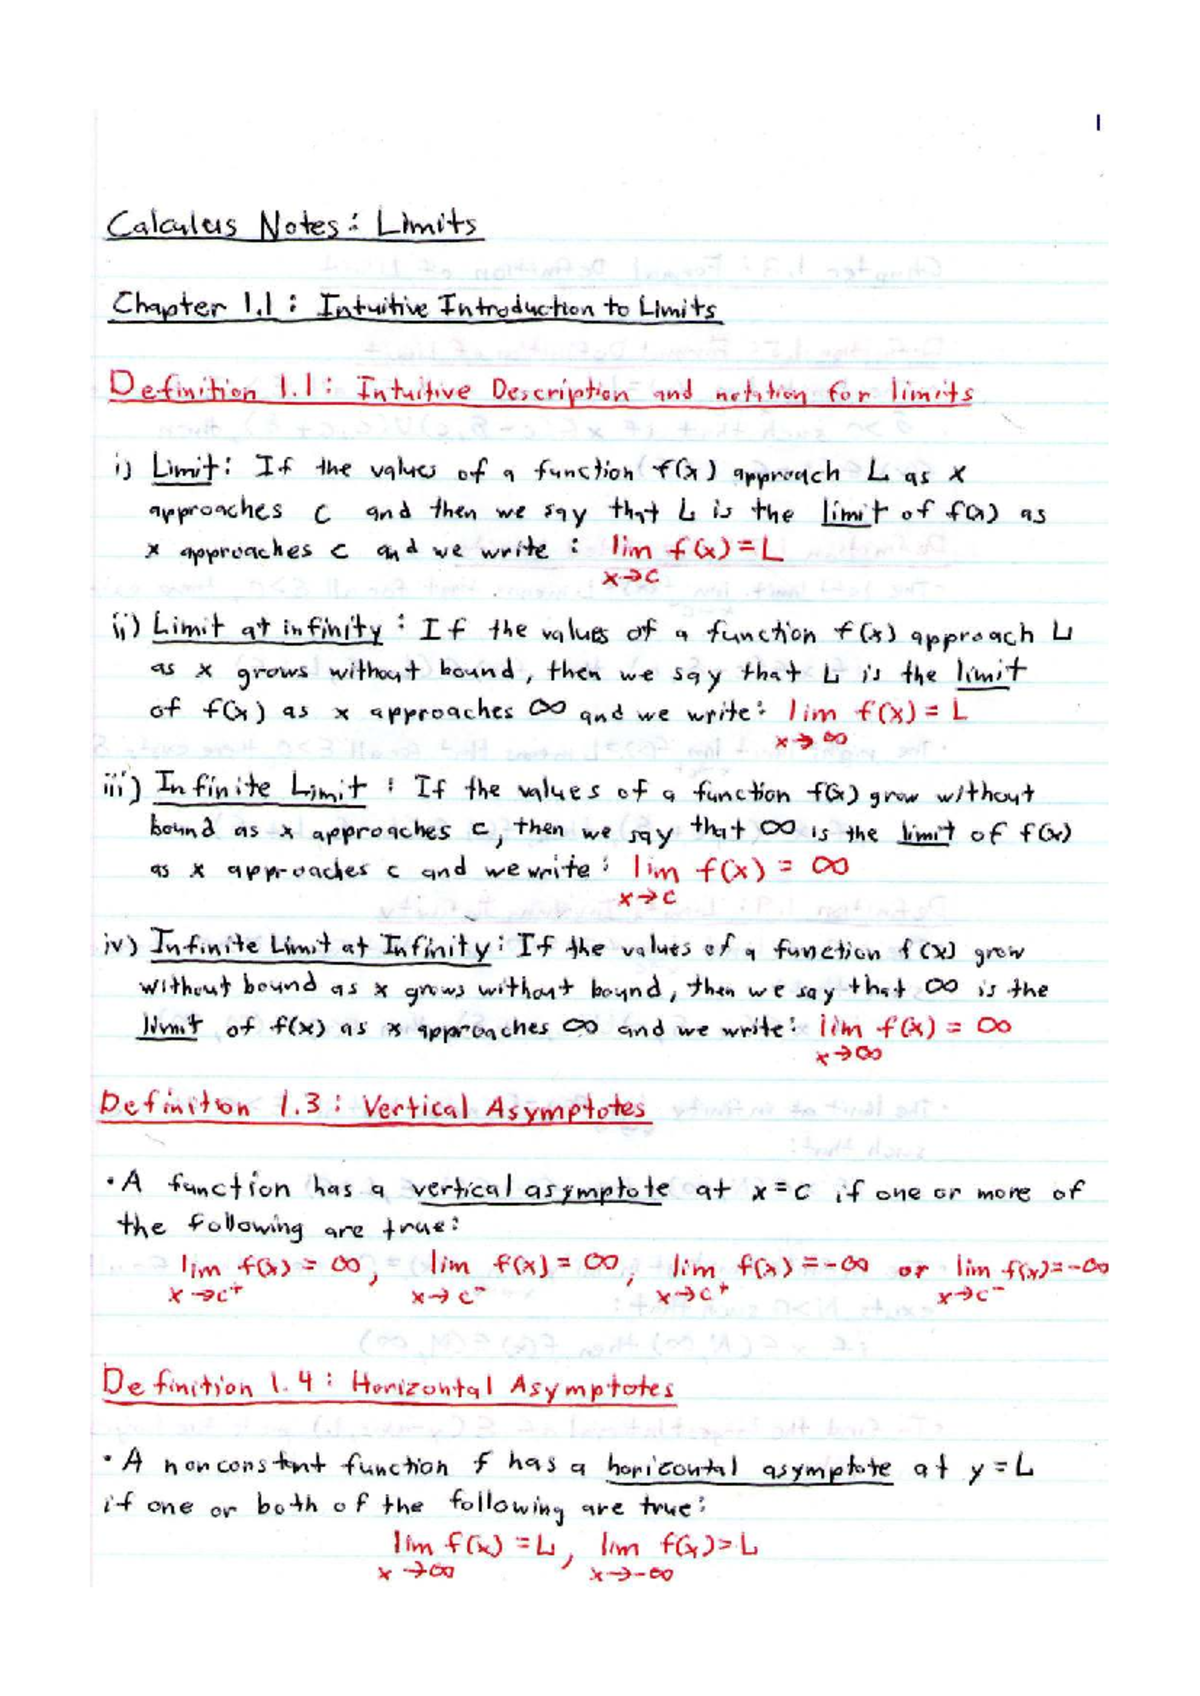 1
Calculus Notes: Limits
Chapter 1.1: Intuitive Introduction to Limits
Definition 1.1: Intuitive Description and notation for limits
i) Limit: If the values of a function f(x) approach L as x
approaches c and then we say that L is the limit of f(x) as
x approaches c and we write: lim f(x)=L
x→c
ii) Limit at infinity: If the values of a function f(x) approach L
as x grows without bound, then we say that L is the limit
of f(x) as x approaches ∞ and we write: lim f(x) = L
x→∞
iii) Infinite Limit: If the values of a function f(x) grow without
bound as x approaches c, then we say that ∞ is the limit of f(x)
as x approaches c and we write: lim f(x) = ∞
x→c
iv) Infinite Limit at Infinity: If the values of a function f(x) grow
without bound as x grows without bound, then we say that ∞ is the
limit of f(x) as x approaches ∞ and we write: lim f(x) = ∞
x→∞
Definition 1.3: Vertical Asymptotes
• A function has a vertical asymptote at x=c if one or more of
the following are true:
lim f(x) = ∞, lim f(x) = ∞, lim f(x) = -∞ or lim f(x)=-∞
x→c⁺ x→c⁻ x→c⁺ x→c⁻
Definition 1.4: Horizontal Asymptotes
• A nonconstant function f has a horizontal asymptote at y=L
if one or both of the following are true:
lim f(x) = L, lim f(x)=L
x→∞ x→-∞